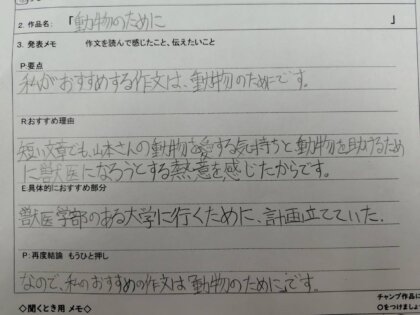 2. 作品名: 「動物のために 」
3. 発表メモ 作文を読んで感じたこと、伝えたいこと
P:要点
私がおすすめする作文は、動物のためにです。
R:おすすめ理由
短い文章でも、山本さんの動物を愛する気持ちと動物を助けるため
に獣医になろうとする熱意を感じたからです。
E:具体的におすすめ部分
獣医学部のある大学に行くために、計画立てていた.
P:再度結論 もうひと押し
なので、私のおすすめの作文は「動物のために」です。
◇聞くとき用 メモ◇
チャンプ作品に
〇をつけましょ